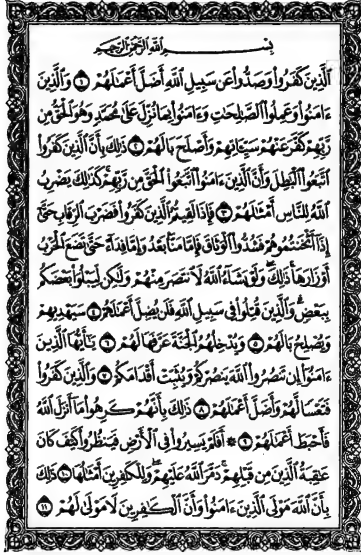 بِسْمِ اللَّهِ الرَّحْمَٰنِ الرَّحِيمِ
الَّذِينَ كَفَرُوا وَصَدُّوا عَن سَبِيلِ اللَّهِ أَضَلَّ أَعْمَٰلَهُمْ ١ وَالَّذِينَ
ءَامَنُوا وَعَمِلُوا الصَّٰلِحَٰتِ وَءَامَنُوا بِمَا نُزِّلَ عَلَىٰ مُحَمَّدٍ وَهُوَ الْحَقُّ مِن
رَّبِّهِمْ كَفَّرَ عَنْهُمْ سَيِّـَٔاتِهِمْ وَأَصْلَحَ بَالَهُمْ ٢ ذَٰلِكَ بِأَنَّ الَّذِينَ كَفَرُوا
اتَّبَعُوا الْبَٰطِلَ وَأَنَّ الَّذِينَ ءَامَنُوا اتَّبَعُوا الْحَقَّ مِن رَّبِّهِمْ كَذَٰلِكَ يَضْرِبُ
اللَّهُ لِلنَّاسِ أَمْثَٰلَهُمْ ٣ فَإِذَا لَقِيتُمُ الَّذِينَ كَفَرُوا فَضَرْبَ الرِّقَابِ حَتَّىٰ
إِذَا أَثْخَنتُمُوهُمْ فَشُدُّوا الْوَثَاقَ فَإِمَّا مَنًّا بَعْدُ وَإِمَّا فِدَاءً حَتَّىٰ تَضَعَ الْحَرْبُ
أَوْزَارَهَا ذَٰلِكَ وَلَوْ يَشَاءُ اللَّهُ لَانتَصَرَ مِنْهُمْ وَلَٰكِن لِّيَبْلُوَا بَعْضَكُم
بِبَعْضٍ وَالَّذِينَ قُتِلُوا فِي سَبِيلِ اللَّهِ فَلَن يُضِلَّ أَعْمَٰلَهُمْ ٤ سَيَهْدِيهِمْ
وَيُصْلِحُ بَالَهُمْ ٥ وَيُدْخِلُهُمُ الْجَنَّةَ عَرَّفَهَا لَهُمْ ٦ يَٰأَيُّهَا الَّذِينَ
ءَامَنُوا إِن تَنصُرُوا اللَّهَ يَنصُرْكُمْ وَيُثَبِّتْ أَقْدَامَكُمْ ٧ وَالَّذِينَ كَفَرُوا
فَتَعْسًا لَّهُمْ وَأَضَلَّ أَعْمَٰلَهُمْ ٨ ذَٰلِكَ بِأَنَّهُمْ كَرِهُوا مَا أَنزَلَ اللَّهُ
فَأَحْبَطَ أَعْمَٰلَهُمْ ٩ ۞ أَفَلَمْ يَسِيرُوا فِي الْأَرْضِ فَيَنظُرُوا كَيْفَ كَانَ
عَٰقِبَةُ الَّذِينَ مِن قَبْلِهِمْ دَمَّرَ اللَّهُ عَلَيْهِمْ وَلِلْكَٰفِرِينَ أَمْثَٰلُهَا ١٠ ذَٰلِكَ
بِأَنَّ اللَّهَ مَوْلَى الَّذِينَ ءَامَنُوا وَأَنَّ الْكَٰفِرِينَ لَا مَوْلَىٰ لَهُمْ ١١